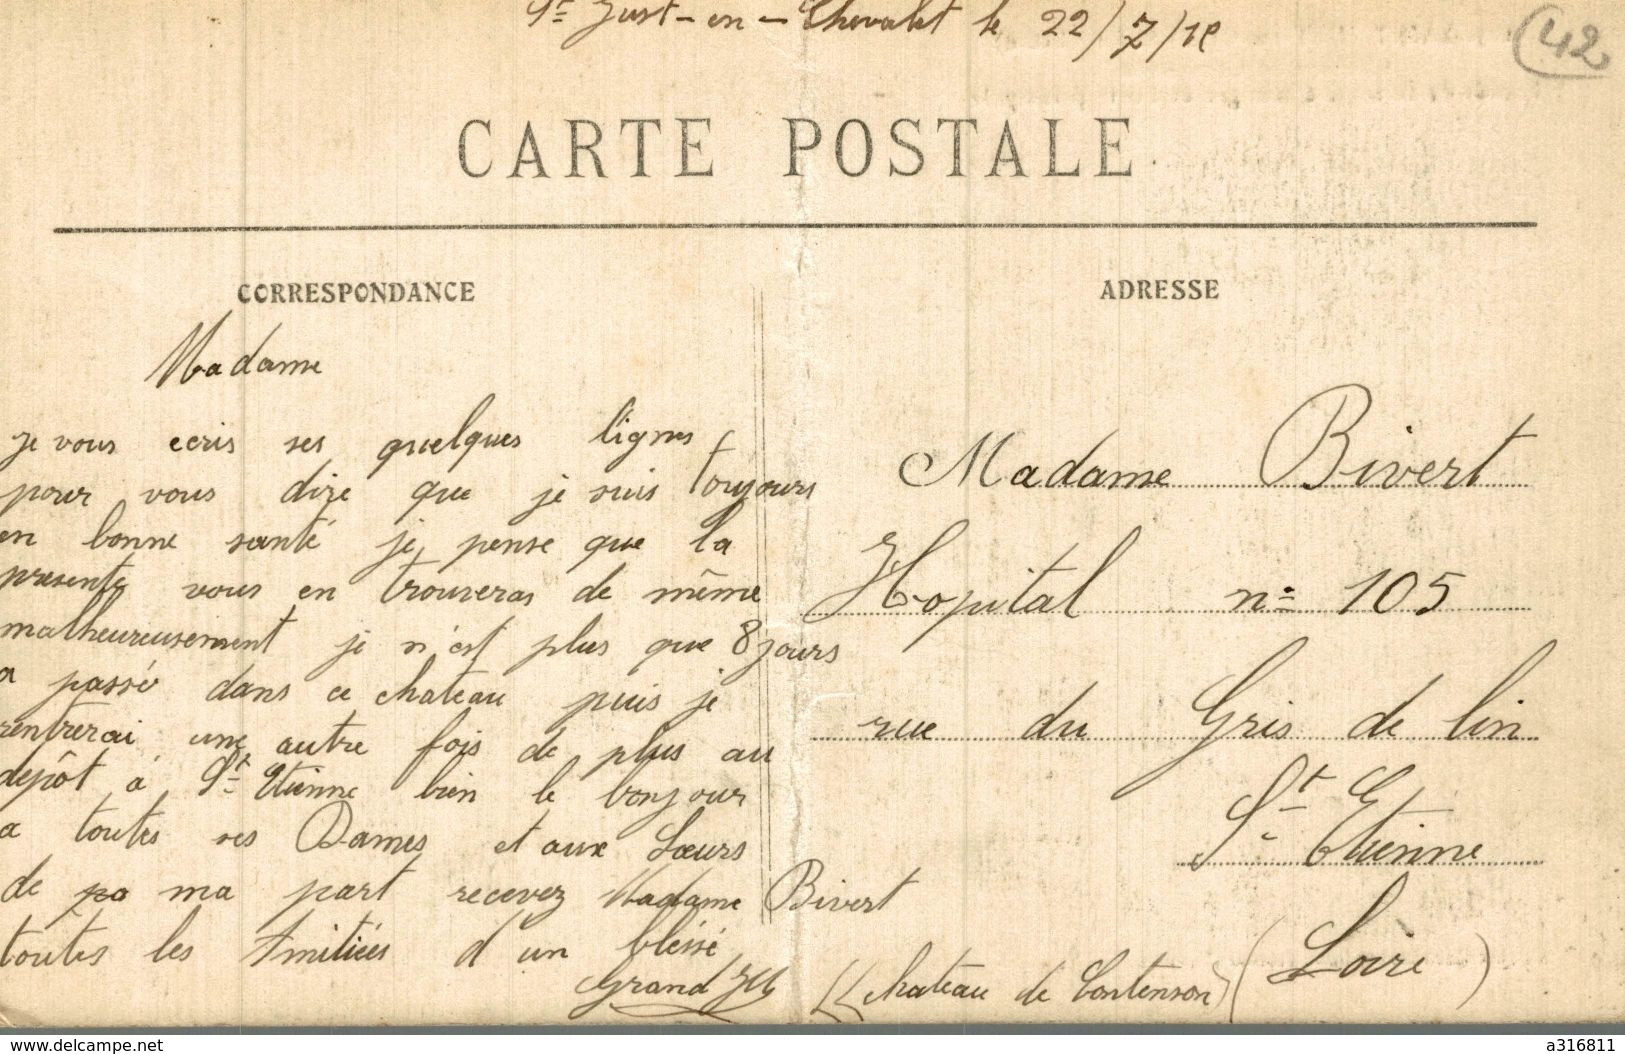 St Just-en-Chevalet le 22/7/18
42
CARTE POSTALE
CORRESPONDANCE
ADRESSE
Madame
je vous ecris ses quelques lignes
pour vous dire que je suis toujours
en bonne santé je pense que la
presente vous en trouveras de même
malheureusement je n'est plus que 8 jours
a passé dans ce chateau puis je
rentrerai une autre fois de plus au
depôt à St Etienne bien le bonjour
a toutes ses Dames et aux Sœurs
de pa ma part recevez Madame Bivert
toutes les Amitiées d'un bléssé
Grand
Madame Bivert
Hopital n° 105
rue du Gris de lin
St Etienne
(Loire)
((chateau de Contenson)
www.delcampe.net
a316811